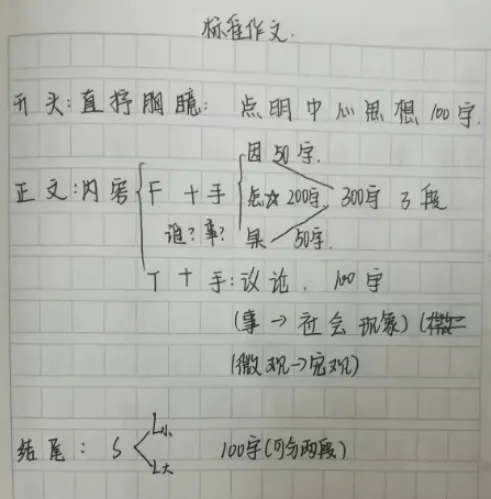 标准作文.
开头:直抒胸臆: 点明中心思想100字.
因 50字.
正文:内容 F + 手 点☆ 200字. 300字 3段
谁? 事? 果 50字.
T + 手: 议论. 100字
(事→社会现象)
(微观→宏观)
L小
结尾: S 100字(可分两段)
L大